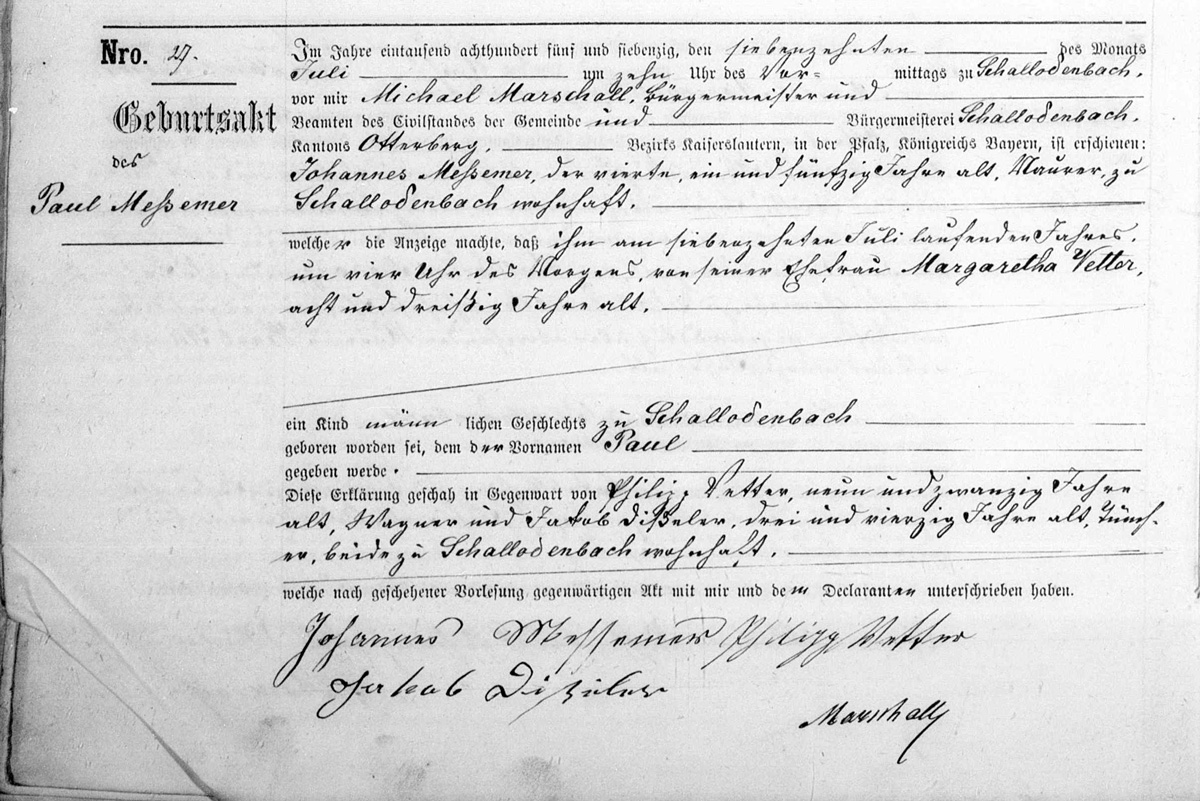 Nro. 27.
Geburtsakt
des
Paul Messemer
Im Jahre eintausend achthundert fünf und siebenzig, den siebenzehnten des Monats
Juli um zehn Uhr des Vor= mittags zu Schallodenbach,
vor mir Michael Marschall, Bürgermeister und
Beamten des Civilstandes der Gemeinde und Bürgermeisterei Schallodenbach,
Kantons Otterberg, Bezirks Kaiserslautern, in der Pfalz, Königreichs Bayern, ist erschienen:
Johannes Messemer, der vierte, ein und fünfzig Jahre alt, Maurer, zu
Schallodenbach wohnhaft.
welcher die Anzeige machte, daß ihm am siebenzehnten Juli laufenden Jahres,
um vier Uhr des Morgens, von seiner Ehefrau Margaretha Vetter,
acht und dreißig Jahre alt.
ein Kind männlichen Geschlechts zu Schallodenbach
geboren worden sei, dem der Vornamen Paul
gegeben werde.
Diese Erklärung geschah in Gegenwart von Philipp Vetter, neun und zwanzig Jahre
alt, Wagner und Jakob Dißeler, drei und vierzig Jahre alt, Tünch-
er, beide zu Schallodenbach wohnhaft.
welche nach geschehener Vorlesung gegenwärtigen Akt mit mir und dem Declaranten unterschrieben haben.
Johannes Messemer Philipp Vetter
Jakob Dißeler
Marschall